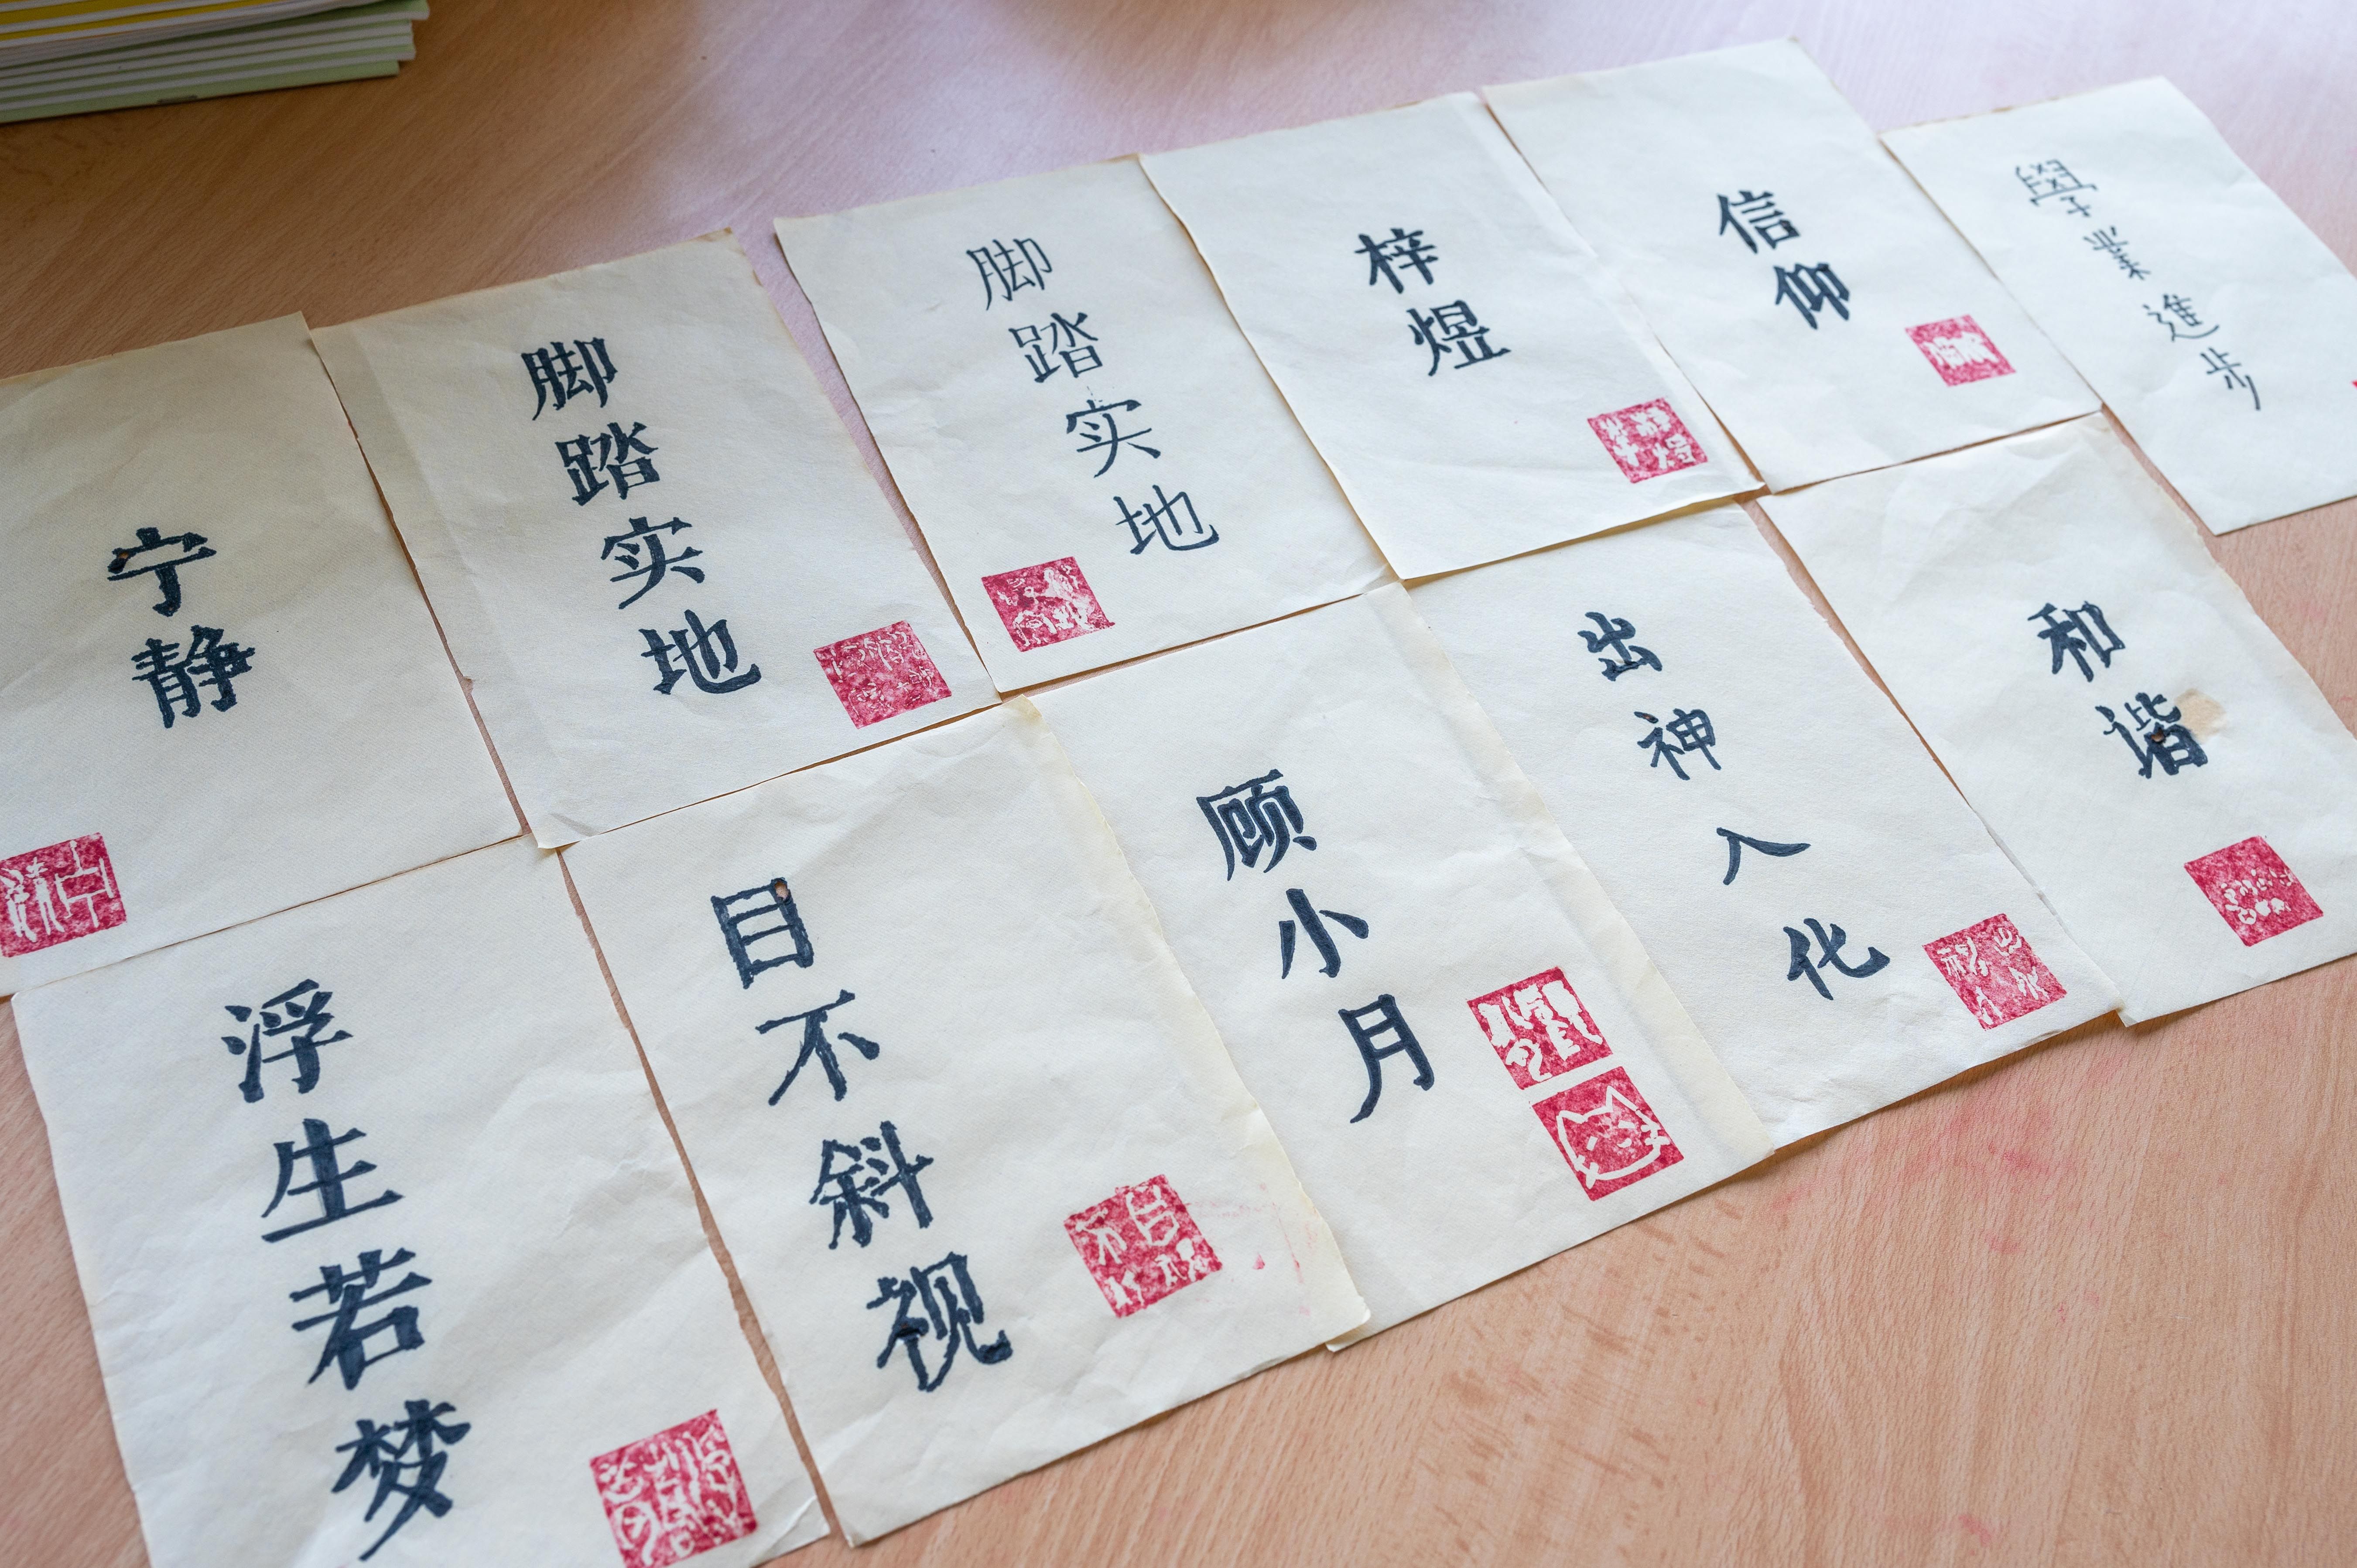 宁静
脚踏实地
脚踏实地
梓煜
信仰
學業進步
浮生若梦
目不斜视
顾小月
出神入化
和谐